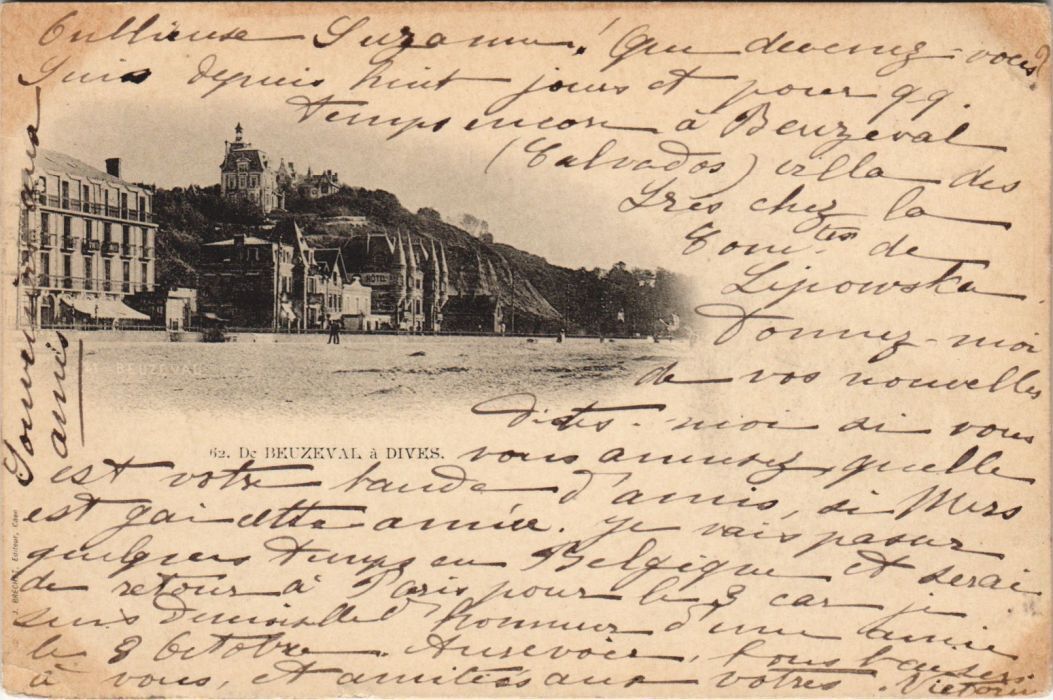 Oublieuse Suzanne! Que devenez-vous?
Suis depuis huit jours et pour qq.
temps encore à Beuzeval
(Calvados) villa des
Lrés chez la
Comtes de
Lipowska.
Donnez-moi
de vos nouvelles
dites-moi si vous
vous amusez, quelle
est votre bande d'amis, si Mers
est gai cette année. Je vais passer
quelques temps en Belgique et serai
de retour à Paris pour le 3 car je
suis Demoiselle d'honneur d'une amie
le 8 Octobre. Aurevoir, bons baisers
à vous, et amitiés aux votres.
Souvenir
amis
HOTEL
61 BEUZEVAL
62. De BEUZEVAL à DIVES.
J. BRECHET, Editeur, Caen